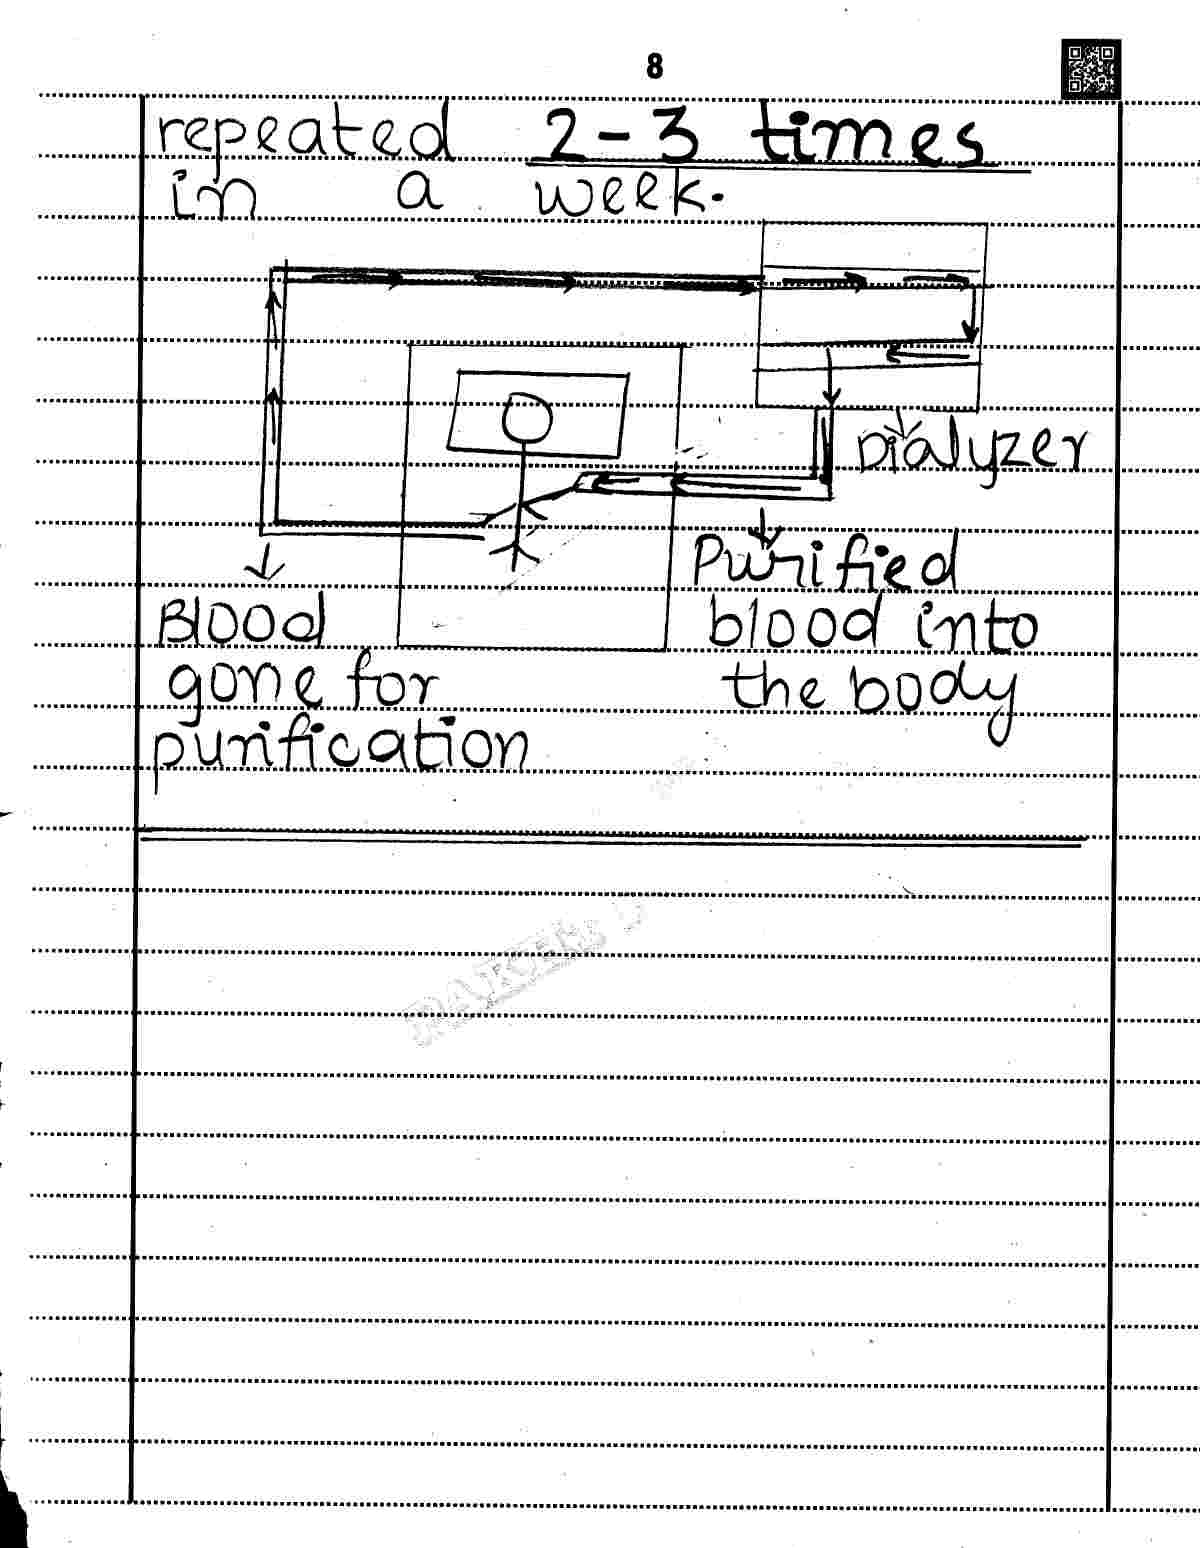 8
repeated 2-3 times
in a week.
Dialyzer
Purified
blood into
the body
Blood
gone for
purification